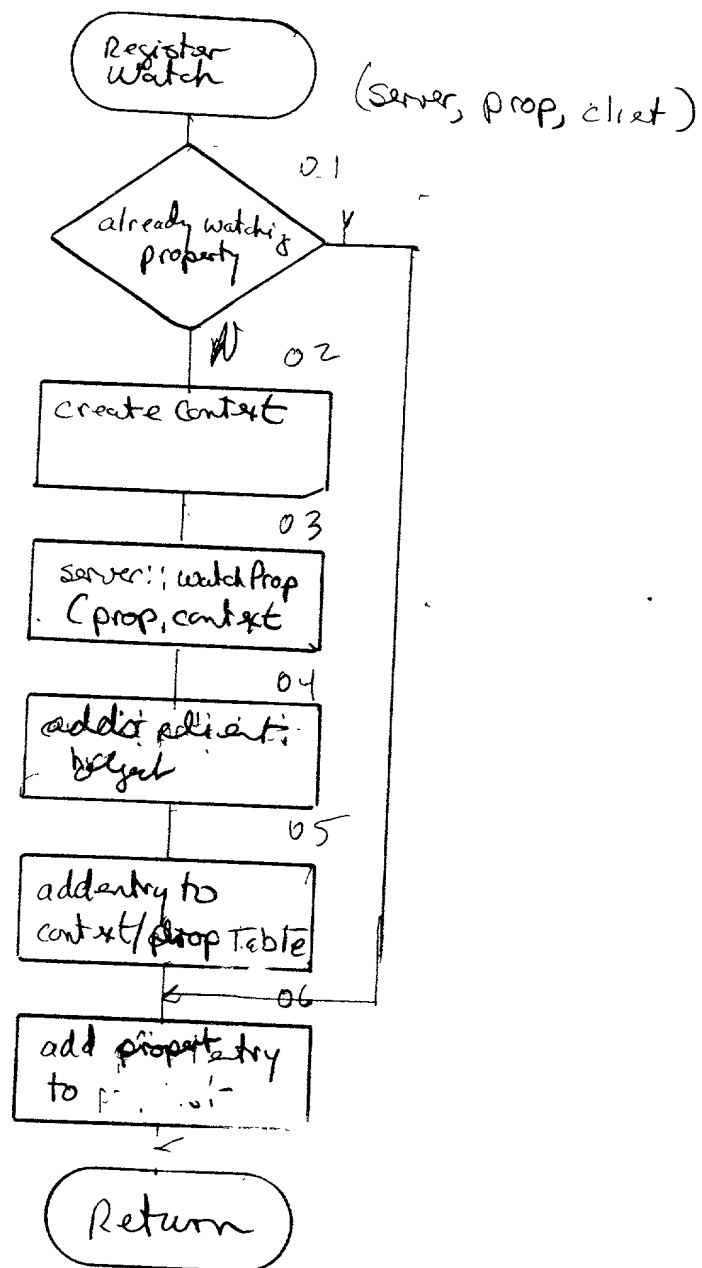 Register
Watch
(server, prop, cliet)
01
already watching
property
Y
N
02
create context
03
server:: watchProp
(prop, context
04
05
add entry to
context/prop Table
06
add entry
to
Return